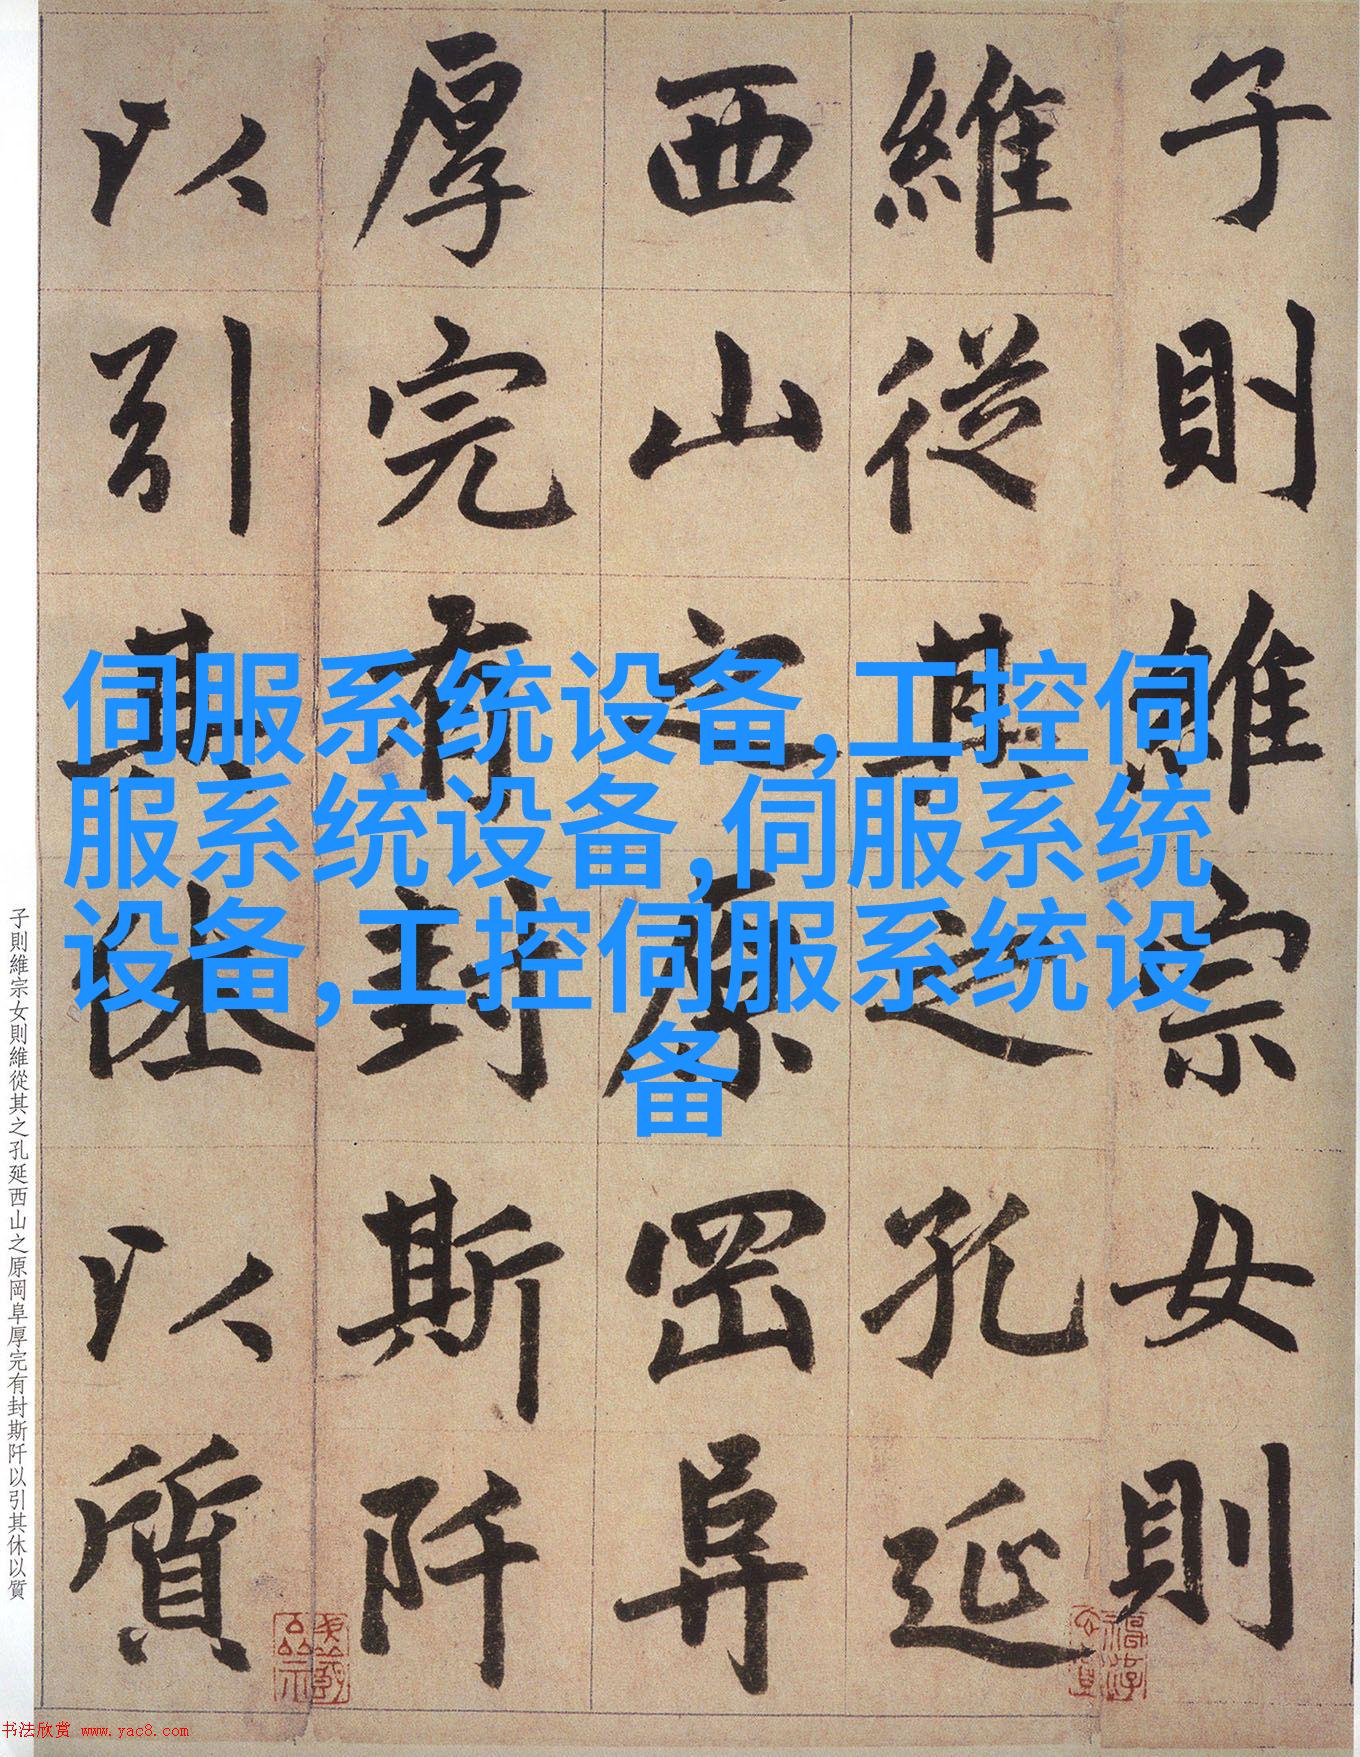 子則維宗女則
維從其之孔延
西山之原岡阜
厚完有封斯阡
以引其休以質
伺服系统设备,工控伺
服系统设备,伺服系统
设备,工控伺服系统设
备
子則維宗女則維從其之孔延西山之原岡阜厚完有封斯阡以引其休以質
书法欣赏 www.yac8.com